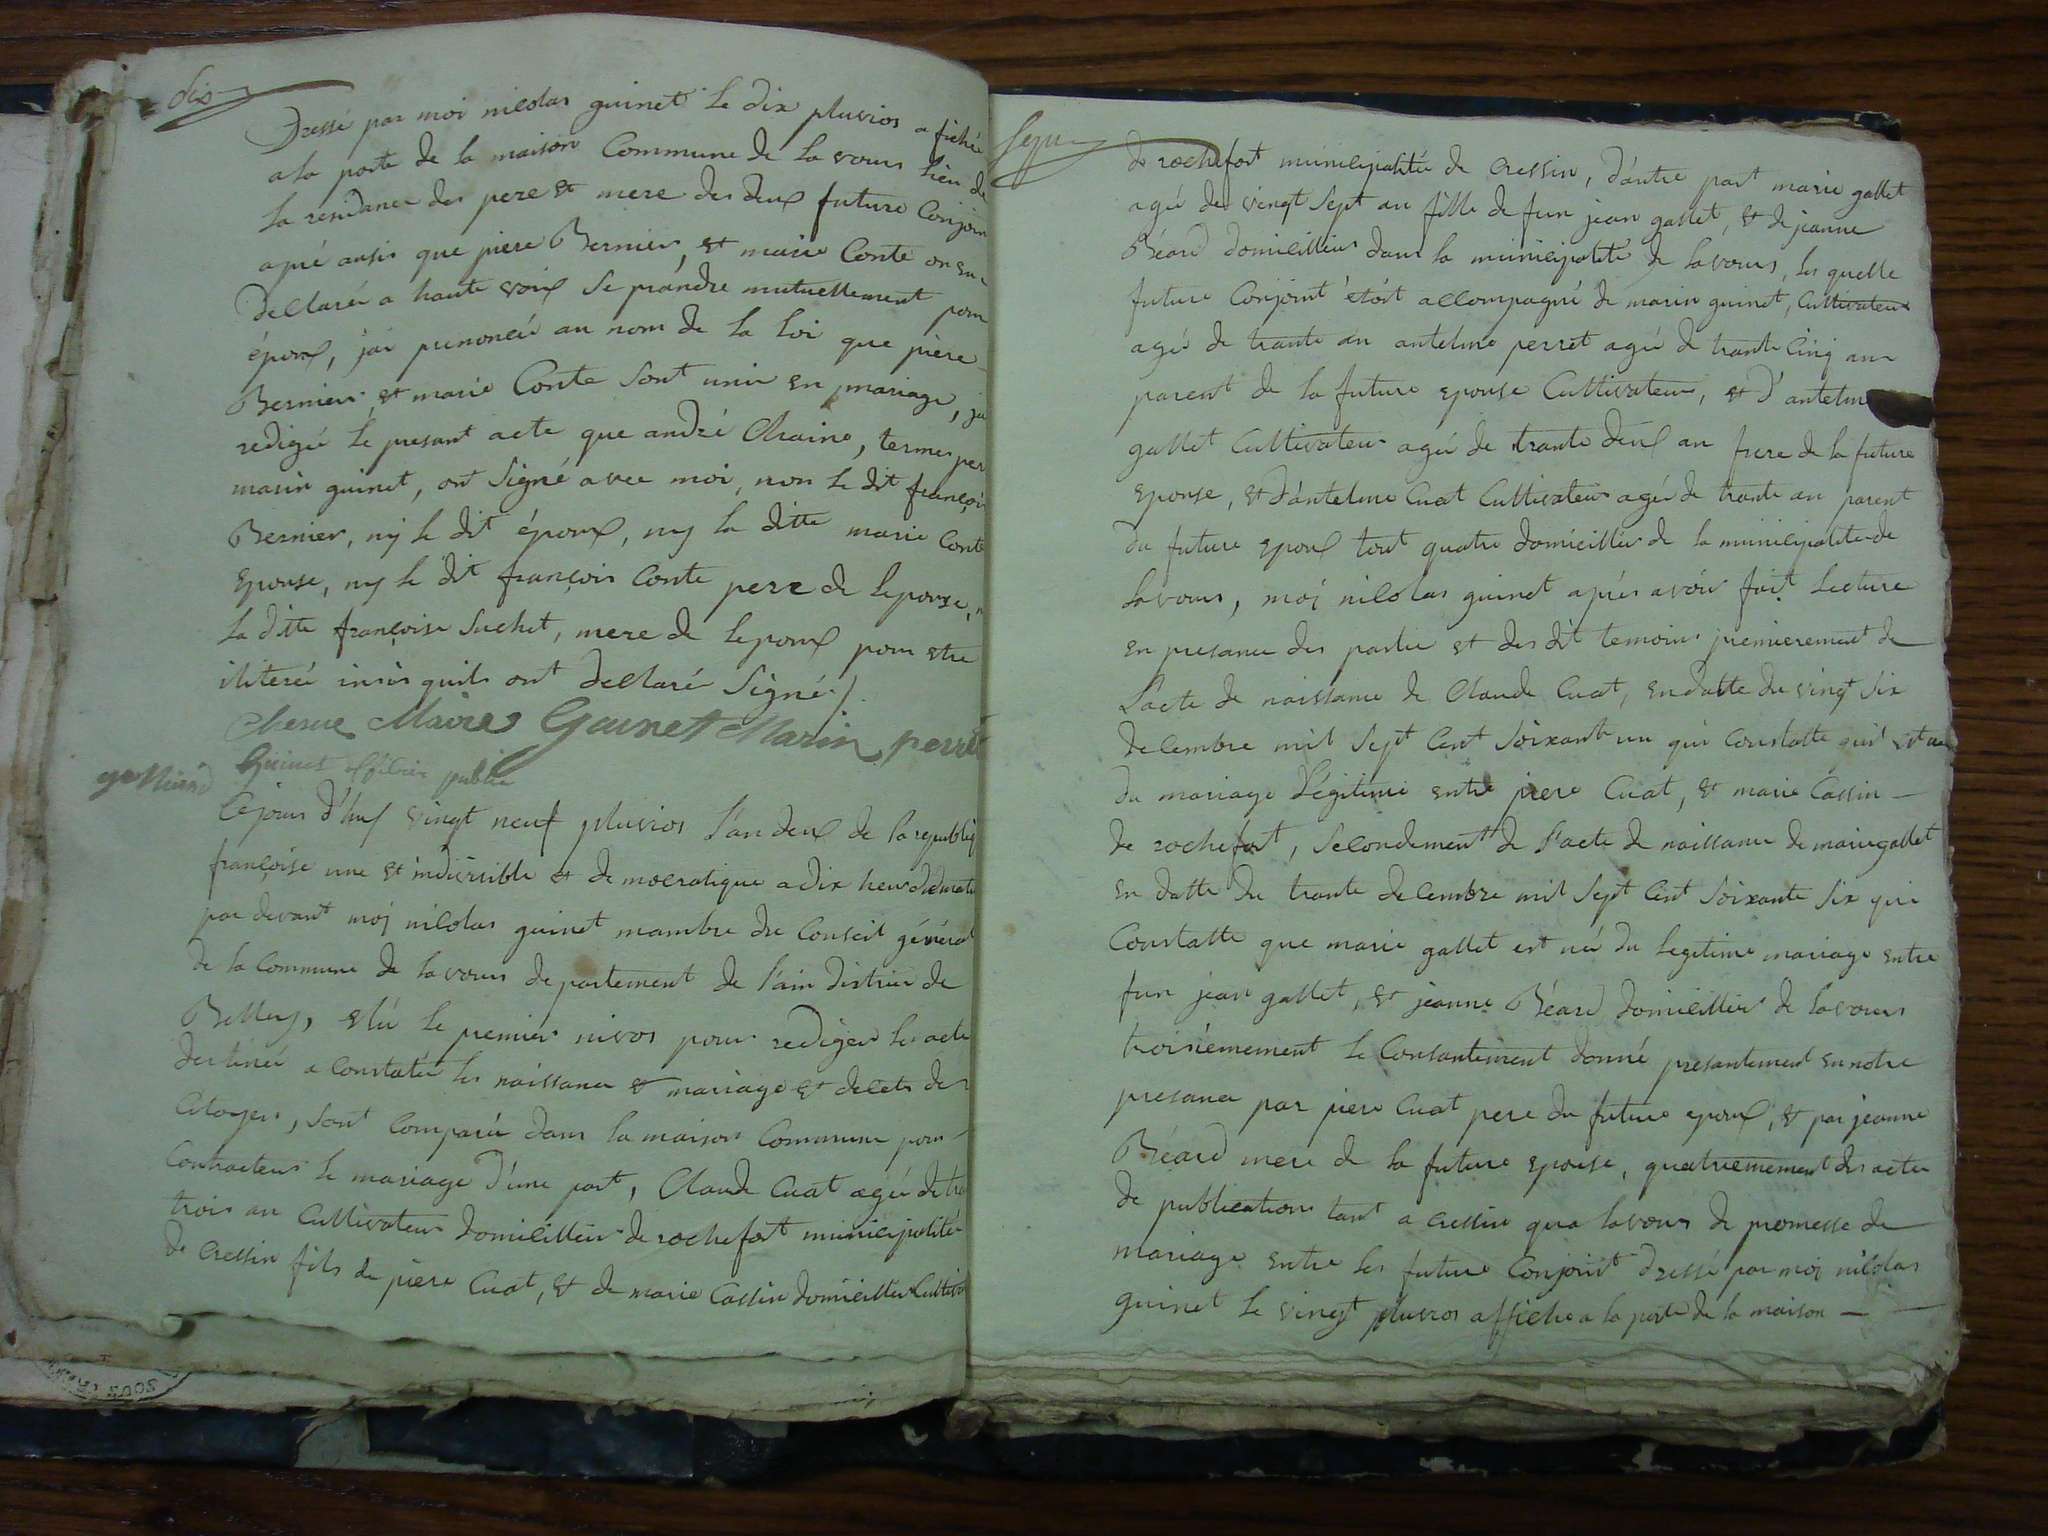 dix
Dressé par moi nicolas guinet le dix pluvios afichée
a la porte de la maison Commune de la vours lieu de
la residance des pere et mere des deux future Conjoin
apré ausis que piere Bernier, et marie Conte on en
declarée a haute voix se prandre mutuellement pour
époux, jai prenoncée au nom de la loi que piere
Bernier, et marie Conte sont unir en mariage, jai
redigée le presant acte que andré
marin guinet, ont signé avec moi, non le dit françois
Bernier, ny le dit époux, ny la ditte marie Conte
epouse, ny le dit françois Conte pere de lepouze,
la ditte françoise Suchet, mere de lepoux pour etre
iliterée insis quils ont declaré signé /.
Maire Guinet Marin perret
Guinet officier public
Ce jours d'huy vingt neuf pluvios l'an deux de la republiq
françoise une et indivisible et democratique a dix heur du mati
par devant moi nicolas guinet mambre du Conseil général
de la commune de la vours departement de l'ain district de
Belley, elu le premier nivos pour rediger les acte
destinée a constatée les naissance et mariage et decets des
Citoyen, sont comparu dans la maison Commune pour
Contracteur le mariage d'une part, Claude Cuat agée de tra
trois an Cultivateur domicillier de rochefort municipalité
de cressin fils de piere Cuat, et de marie Cassin domicillier Cultiva
de rochefort municipalitée de cressin, d'autre part marie gallet
agée de vingt sept an fille de fun jean gallet, et de jeanne
Béard domicillier dans la municipalité de lavours, les quelle
future Conjoint étoit accompagné de marin guinet, Cultivateur
agée de trante an antelme perret agée de trante cinq an
parent de la future epouse Cultivateur, et d'antelm
gallet Cultivateur agée de trante deux an frere de la future
epouse, et d'antelme Cuat Cultivateur agée de trante an parent
du future epoux tout quatre domicillier de la municipalite de
lavours, moi nicolas guinet aprés avoir fait lecture
en presance des partie et des dit temoins premierement de
l'acte de naissance de Claude Cuat, en datte du vingt six
decembre mil sept cent soixante un qui constatte quil est né
du mariage légitime entre piere Cuat, et marie Cassin
de rochefort, secondement de l'acte de naissance de marie gallet
en datte du trante decembre mil sept cent soixante six qui
Constatte que marie gallet est né du legitime mariage entre
fun jean gallet, et jeanne Béard domicillier de lavours
troisiemement le Consantement donné presantement en notre
presance par piere Cuat pere du future epoux, et par jeanne
Béard mere de la future epouse, quatriemement des actes
de publications tant a cressin qua lavours de promesse de
mariage entre les future Conjoint dressé par moi nicolas
guinet le vingt pluvios affichée a la porte de la maison